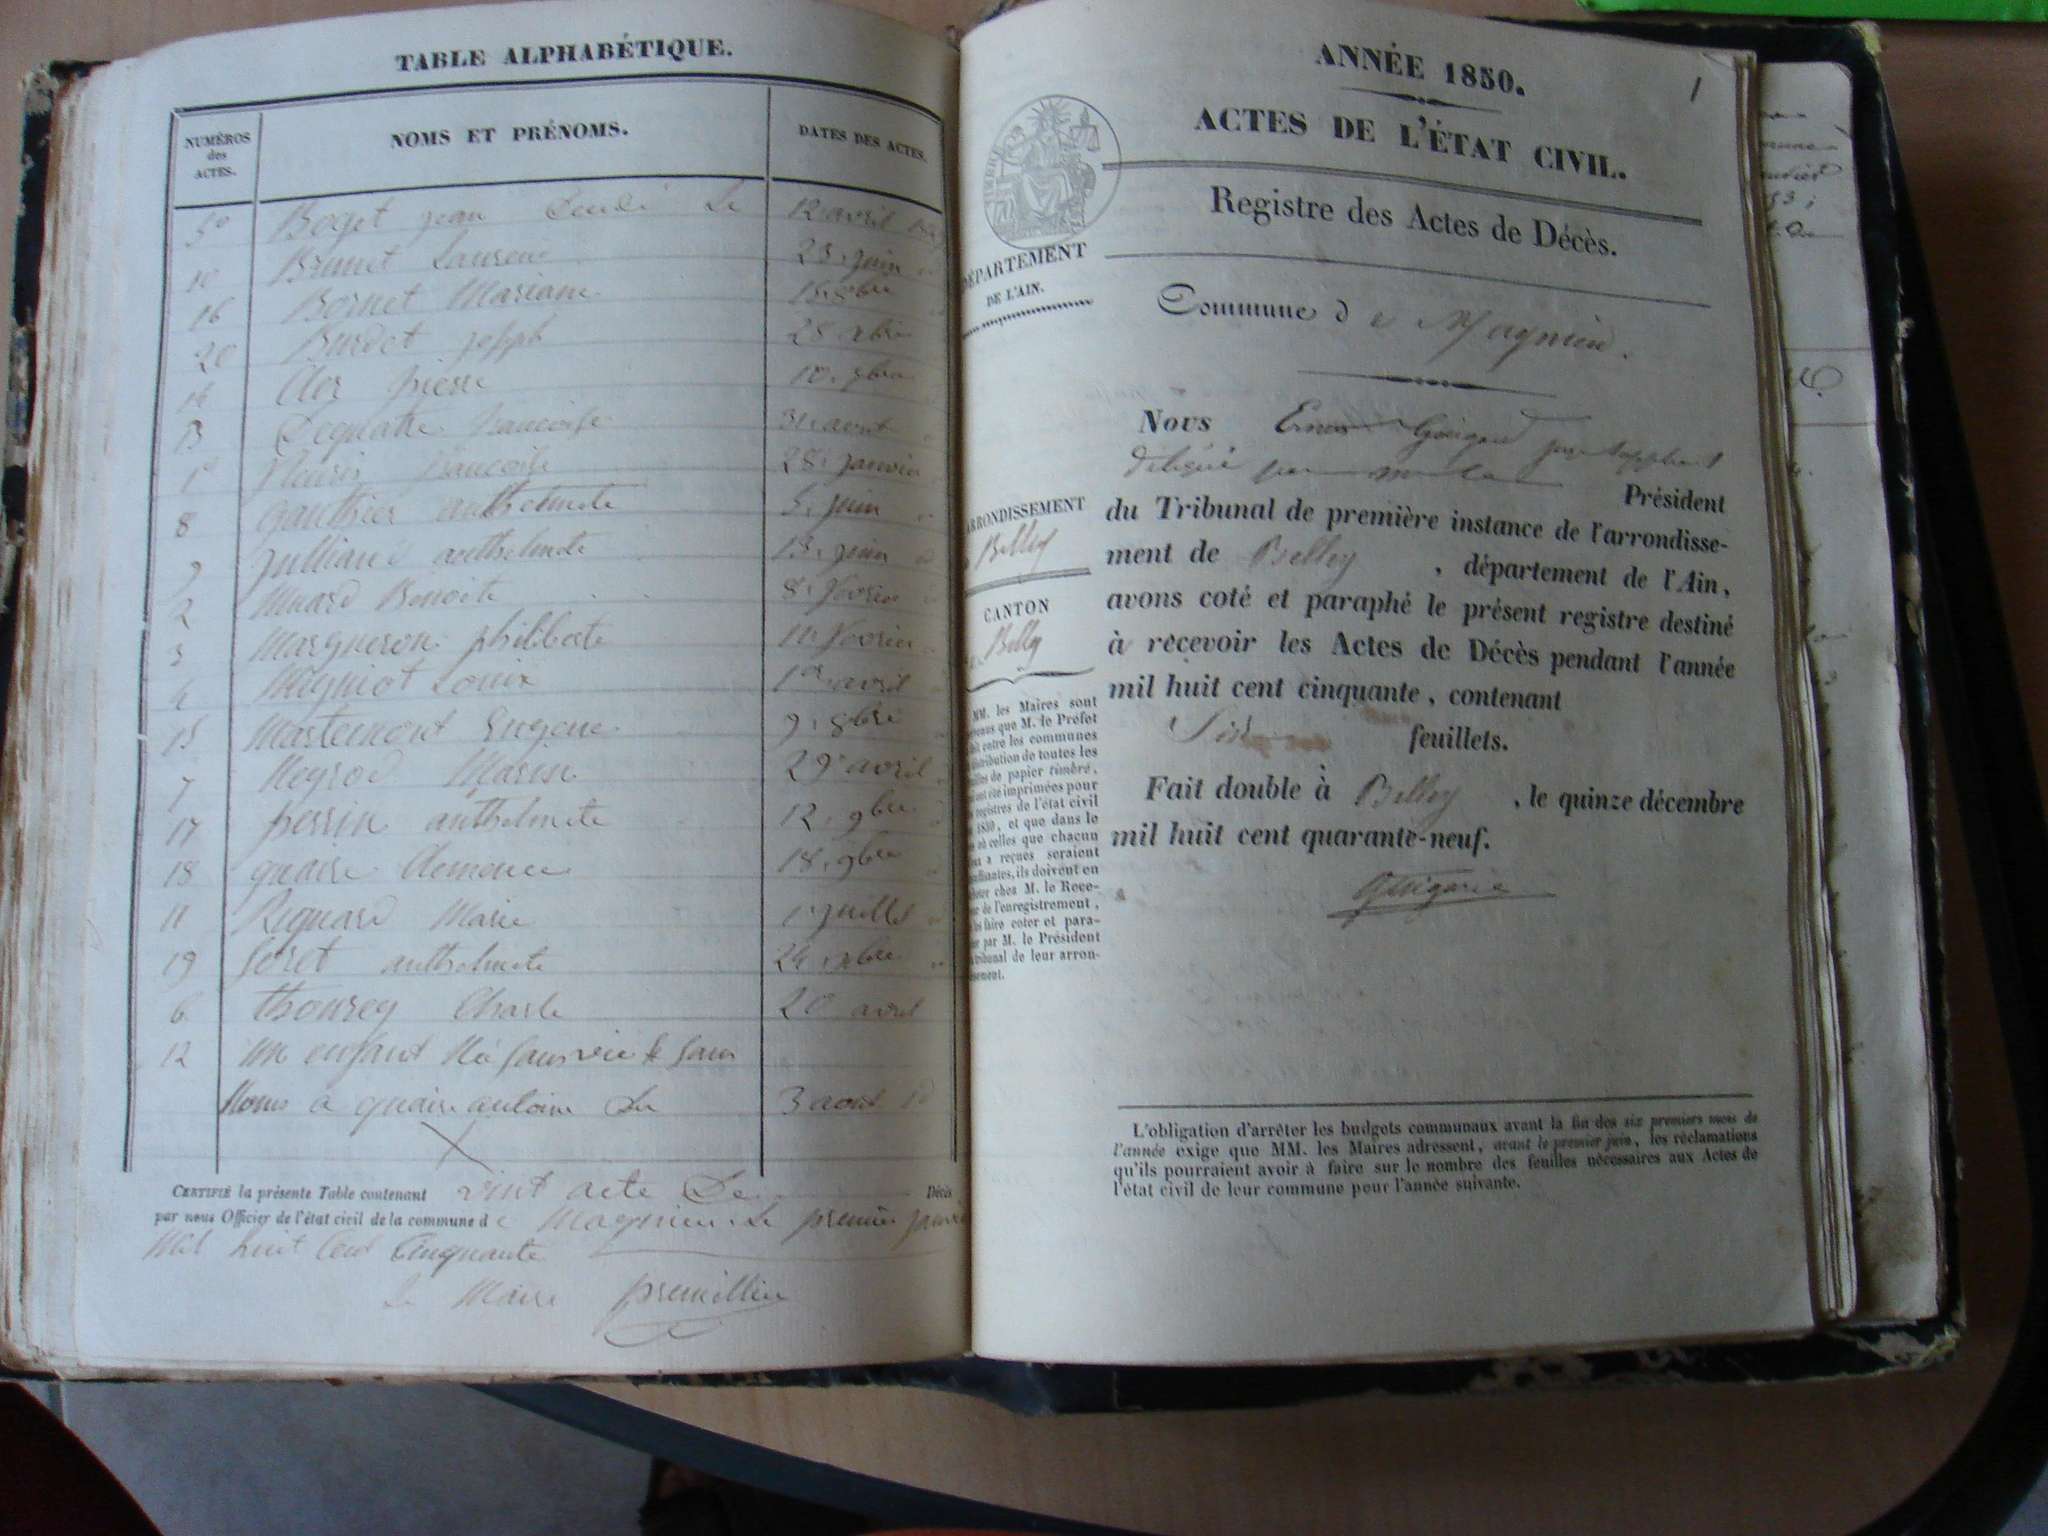 TABLE ALPHABÉTIQUE.
NUMÉROS
des
ACTES.
NOMS ET PRÉNOMS.
DATES DES ACTES.
5º Boget jean Le 12 avril
10 Brunet 23 juin
16 Bornet Mariane 15 8bre
20 Burdet joseph 28
14 Cler pierre 10
13 francoise 31 aout
1er francoise 28 janvier
8 gauthier anthelmete 5 juin
9 julliand anthelmete 13 juin
2 Benoite 8 fevrier
3 Margueron philiberte 11 fevrier
4 Mygniot Louise 1er avril
15 Eugene 9 8bre
7 Neyrod Marin 29 avril
17 perrin anthelmete 12 9bre
18 quaire Clemence 18 9bre
11 Reynard Marie 1 juillet
19 Seret anthelmete 24
6 thourey Charle 20 avril
12 un enfant Né sans vie & sans
Noms a quaire antoine du 3 aout
CERTIFIÉ la présente Table contenant vint acte De Décès
par nous Officier de l'état civil de la commune de Magnieu Le premier janvier
Mil huit Cent Cinquante
Le Maire premillieu
1
ANNÉE 1850.
ACTES DE L'ÉTAT CIVIL.
Registre des Actes de Décès.
DÉPARTEMENT
DE L'AIN.
Commune de Magnieu.
Nous juge suppléant
délégué par
Président
ARRONDISSEMENT
Belley
du Tribunal de première instance de l'arrondisse-
ment de Belley, département de l'Ain,
CANTON
Belley
avons coté et paraphé le présent registre destiné
à recevoir les Actes de Décès pendant l'année
mil huit cent cinquante, contenant
feuillets.
Fait double à Belley, le quinze décembre
mil huit cent quarante-neuf.
MM. les Maires sont
que M. le Préfet
entre les communes
distribution de toutes les
feuilles de papier timbré,
ont été imprimées pour
registres de l'état civil
1850, et que dans le
où celles que chacun
a reçues seraient
ils doivent en
chez M. le Rece-
de l'enregistrement,
les faire coter et para-
par M. le Président
tribunal de leur arron-
L'obligation d'arrêter les budgets communaux avant la fin des six premiers mois de
l'année exige que MM. les Maires adressent, avant le premier juin, les réclamations
qu'ils pourraient avoir à faire sur le nombre des feuilles nécessaires aux Actes de
l'état civil de leur commune pour l'année suivante.